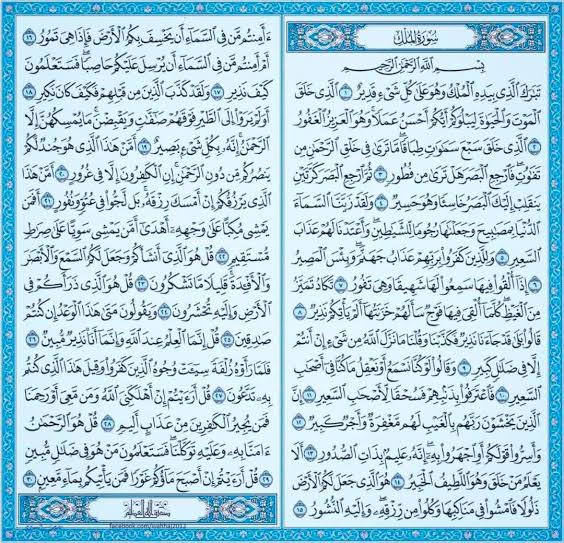 سُورَةُ المُلْكِ
بِسْمِ اللَّهِ الرَّحْمَٰنِ الرَّحِيمِ
تَبَٰرَكَ ٱلَّذِى بِيَدِهِ ٱلْمُلْكُ وَهُوَ عَلَىٰ كُلِّ شَىْءٍ قَدِيرٌ ١ ٱلَّذِى خَلَقَ
ٱلْمَوْتَ وَٱلْحَيَوٰةَ لِيَبْلُوَكُمْ أَيُّكُمْ أَحْسَنُ عَمَلًا وَهُوَ ٱلْعَزِيزُ ٱلْغَفُورُ
٢ ٱلَّذِى خَلَقَ سَبْعَ سَمَٰوَٰتٍ طِبَاقًا مَّا تَرَىٰ فِى خَلْقِ ٱلرَّحْمَٰنِ مِن
تَفَٰوُتٍ فَٱرْجِعِ ٱلْبَصَرَ هَلْ تَرَىٰ مِن فُطُورٍ ٣ ثُمَّ ٱرْجِعِ ٱلْبَصَرَ كَرَّتَيْنِ
يَنقَلِبْ إِلَيْكَ ٱلْبَصَرُ خَاسِئًا وَهُوَ حَسِيرٌ ٤ وَلَقَدْ زَيَّنَّا ٱلسَّمَآءَ
ٱلدُّنْيَا بِمَصَٰبِيحَ وَجَعَلْنَٰهَا رُجُومًا لِّلشَّيَٰطِينِ وَأَعْتَدْنَا لَهُمْ عَذَابَ
ٱلسَّعِيرِ ٥ وَلِلَّذِينَ كَفَرُوا۟ بِرَبِّهِمْ عَذَابُ جَهَنَّمَ وَبِئْسَ ٱلْمَصِيرُ
٦ إِذَآ أُلْقُوا۟ فِيهَا سَمِعُوا۟ لَهَا شَهِيقًا وَهِىَ تَفُورُ ٧ تَكَادُ تَمَيَّزُ
مِنَ ٱلْغَيْظِ كُلَّمَآ أُلْقِىَ فِيهَا فَوْجٌ سَأَلَهُمْ خَزَنَتُهَآ أَلَمْ يَأْتِكُمْ نَذِيرٌ ٨
قَالُوا۟ بَلَىٰ قَدْ جَآءَنَا نَذِيرٌ فَكَذَّبْنَا وَقُلْنَا مَا نَزَّلَ ٱللَّهُ مِن شَىْءٍ إِنْ أَنتُمْ
إِلَّا فِى ضَلَٰلٍ كَبِيرٍ ٩ وَقَالُوا۟ لَوْ كُنَّا نَسْمَعُ أَوْ نَعْقِلُ مَا كُنَّا فِىٓ أَصْحَٰبِ
ٱلسَّعِيرِ ١٠ فَٱعْتَرَفُوا۟ بِذَنۢبِهِمْ فَسُحْقًا لِّأَصْحَٰبِ ٱلسَّعِيرِ ١١ إِنَّ
ٱلَّذِينَ يَخْشَوْنَ رَبَّهُم بِٱلْغَيْبِ لَهُم مَّغْفِرَةٌ وَأَجْرٌ كَبِيرٌ ١٢
وَأَسِرُّوا۟ قَوْلَكُمْ أَوِ ٱجْهَرُوا۟ بِهِۦٓ إِنَّهُۥ عَلِيمٌۢ بِذَاتِ ٱلصُّدُورِ ١٣ أَلَا
يَعْلَمُ مَنْ خَلَقَ وَهُوَ ٱللَّطِيفُ ٱلْخَبِيرُ ١٤ هُوَ ٱلَّذِى جَعَلَ لَكُمُ ٱلْأَرْضَ
ذَلُولًا فَٱمْشُوا۟ فِى مَنَاكِبِهَا وَكُلُوا۟ مِن رِّزْقِهِۦ وَإِلَيْهِ ٱلنُّشُورُ ١٥
ءَأَمِنتُم مَّن فِى ٱلسَّمَآءِ أَن يَخْسِفَ بِكُمُ ٱلْأَرْضَ فَإِذَا هِىَ تَمُورُ ١٦
أَمْ أَمِنتُم مَّن فِى ٱلسَّمَآءِ أَن يُرْسِلَ عَلَيْكُمْ حَاصِبًا فَسَتَعْلَمُونَ
كَيْفَ نَذِيرِ ١٧ وَلَقَدْ كَذَّبَ ٱلَّذِينَ مِن قَبْلِهِمْ فَكَيْفَ كَانَ نَكِيرِ ١٨
أَوَلَمْ يَرَوْا۟ إِلَى ٱلطَّيْرِ فَوْقَهُمْ صَٰٓفَّٰتٍ وَيَقْبِضْنَ مَا يُمْسِكُهُنَّ إِلَّا
ٱلرَّحْمَٰنُ إِنَّهُۥ بِكُلِّ شَىْءٍۭ بَصِيرٌ ١٩ أَمَّنْ هَٰذَا ٱلَّذِى هُوَ جُندٌ لَّكُمْ
يَنصُرُكُم مِّن دُونِ ٱلرَّحْمَٰنِ إِنِ ٱلْكَٰفِرُونَ إِلَّا فِى غُرُورٍ ٢٠ أَمَّنْ هَٰذَا
ٱلَّذِى يَرْزُقُكُمْ إِنْ أَمْسَكَ رِزْقَهُۥ بَل لَّجُّوا۟ فِى عُتُوٍّ وَنُفُورٍ ٢١ أَفَمَن
يَمْشِى مُكِبًّا عَلَىٰ وَجْهِهِۦٓ أَهْدَىٰٓ أَمَّن يَمْشِى سَوِيًّا عَلَىٰ صِرَٰطٍ
مُّسْتَقِيمٍ ٢٢ قُلْ هُوَ ٱلَّذِىٓ أَنشَأَكُمْ وَجَعَلَ لَكُمُ ٱلسَّمْعَ وَٱلْأَبْصَٰرَ
وَٱلْأَفْـِٔدَةَ قَلِيلًا مَّا تَشْكُرُونَ ٢٣ قُلْ هُوَ ٱلَّذِى ذَرَأَكُمْ فِى
ٱلْأَرْضِ وَإِلَيْهِ تُحْشَرُونَ ٢٤ وَيَقُولُونَ مَتَىٰ هَٰذَا ٱلْوَعْدُ إِن كُنتُمْ
صَٰدِقِينَ ٢٥ قُلْ إِنَّمَا ٱلْعِلْمُ عِندَ ٱللَّهِ وَإِنَّمَآ أَنَا۠ نَذِيرٌ مُّبِينٌ ٢٦
فَلَمَّا رَأَوْهُ زُلْفَةً سِيٓـَٔتْ وُجُوهُ ٱلَّذِينَ كَفَرُوا۟ وَقِيلَ هَٰذَا ٱلَّذِى كُنتُم
بِهِۦ تَدَّعُونَ ٢٧ قُلْ أَرَءَيْتُمْ إِنْ أَهْلَكَنِىَ ٱللَّهُ وَمَن مَّعِىَ أَوْ رَحِمَنَا
فَمَن يُجِيرُ ٱلْكَٰفِرِينَ مِنْ عَذَابٍ أَلِيمٍ ٢٨ قُلْ هُوَ ٱلرَّحْمَٰنُ
ءَامَنَّا بِهِۦ وَعَلَيْهِ تَوَكَّلْنَا فَسَتَعْلَمُونَ مَنْ هُوَ فِى ضَلَٰلٍ مُّبِينٍ
٢٩ قُلْ أَرَءَيْتُمْ إِنْ أَصْبَحَ مَآؤُكُمْ غَوْرًا فَمَن يَأْتِيكُم بِمَآءٍ مَّعِينٍۭ ٣٠
صدق الله العظيم
facebook.com/wahhaj2012